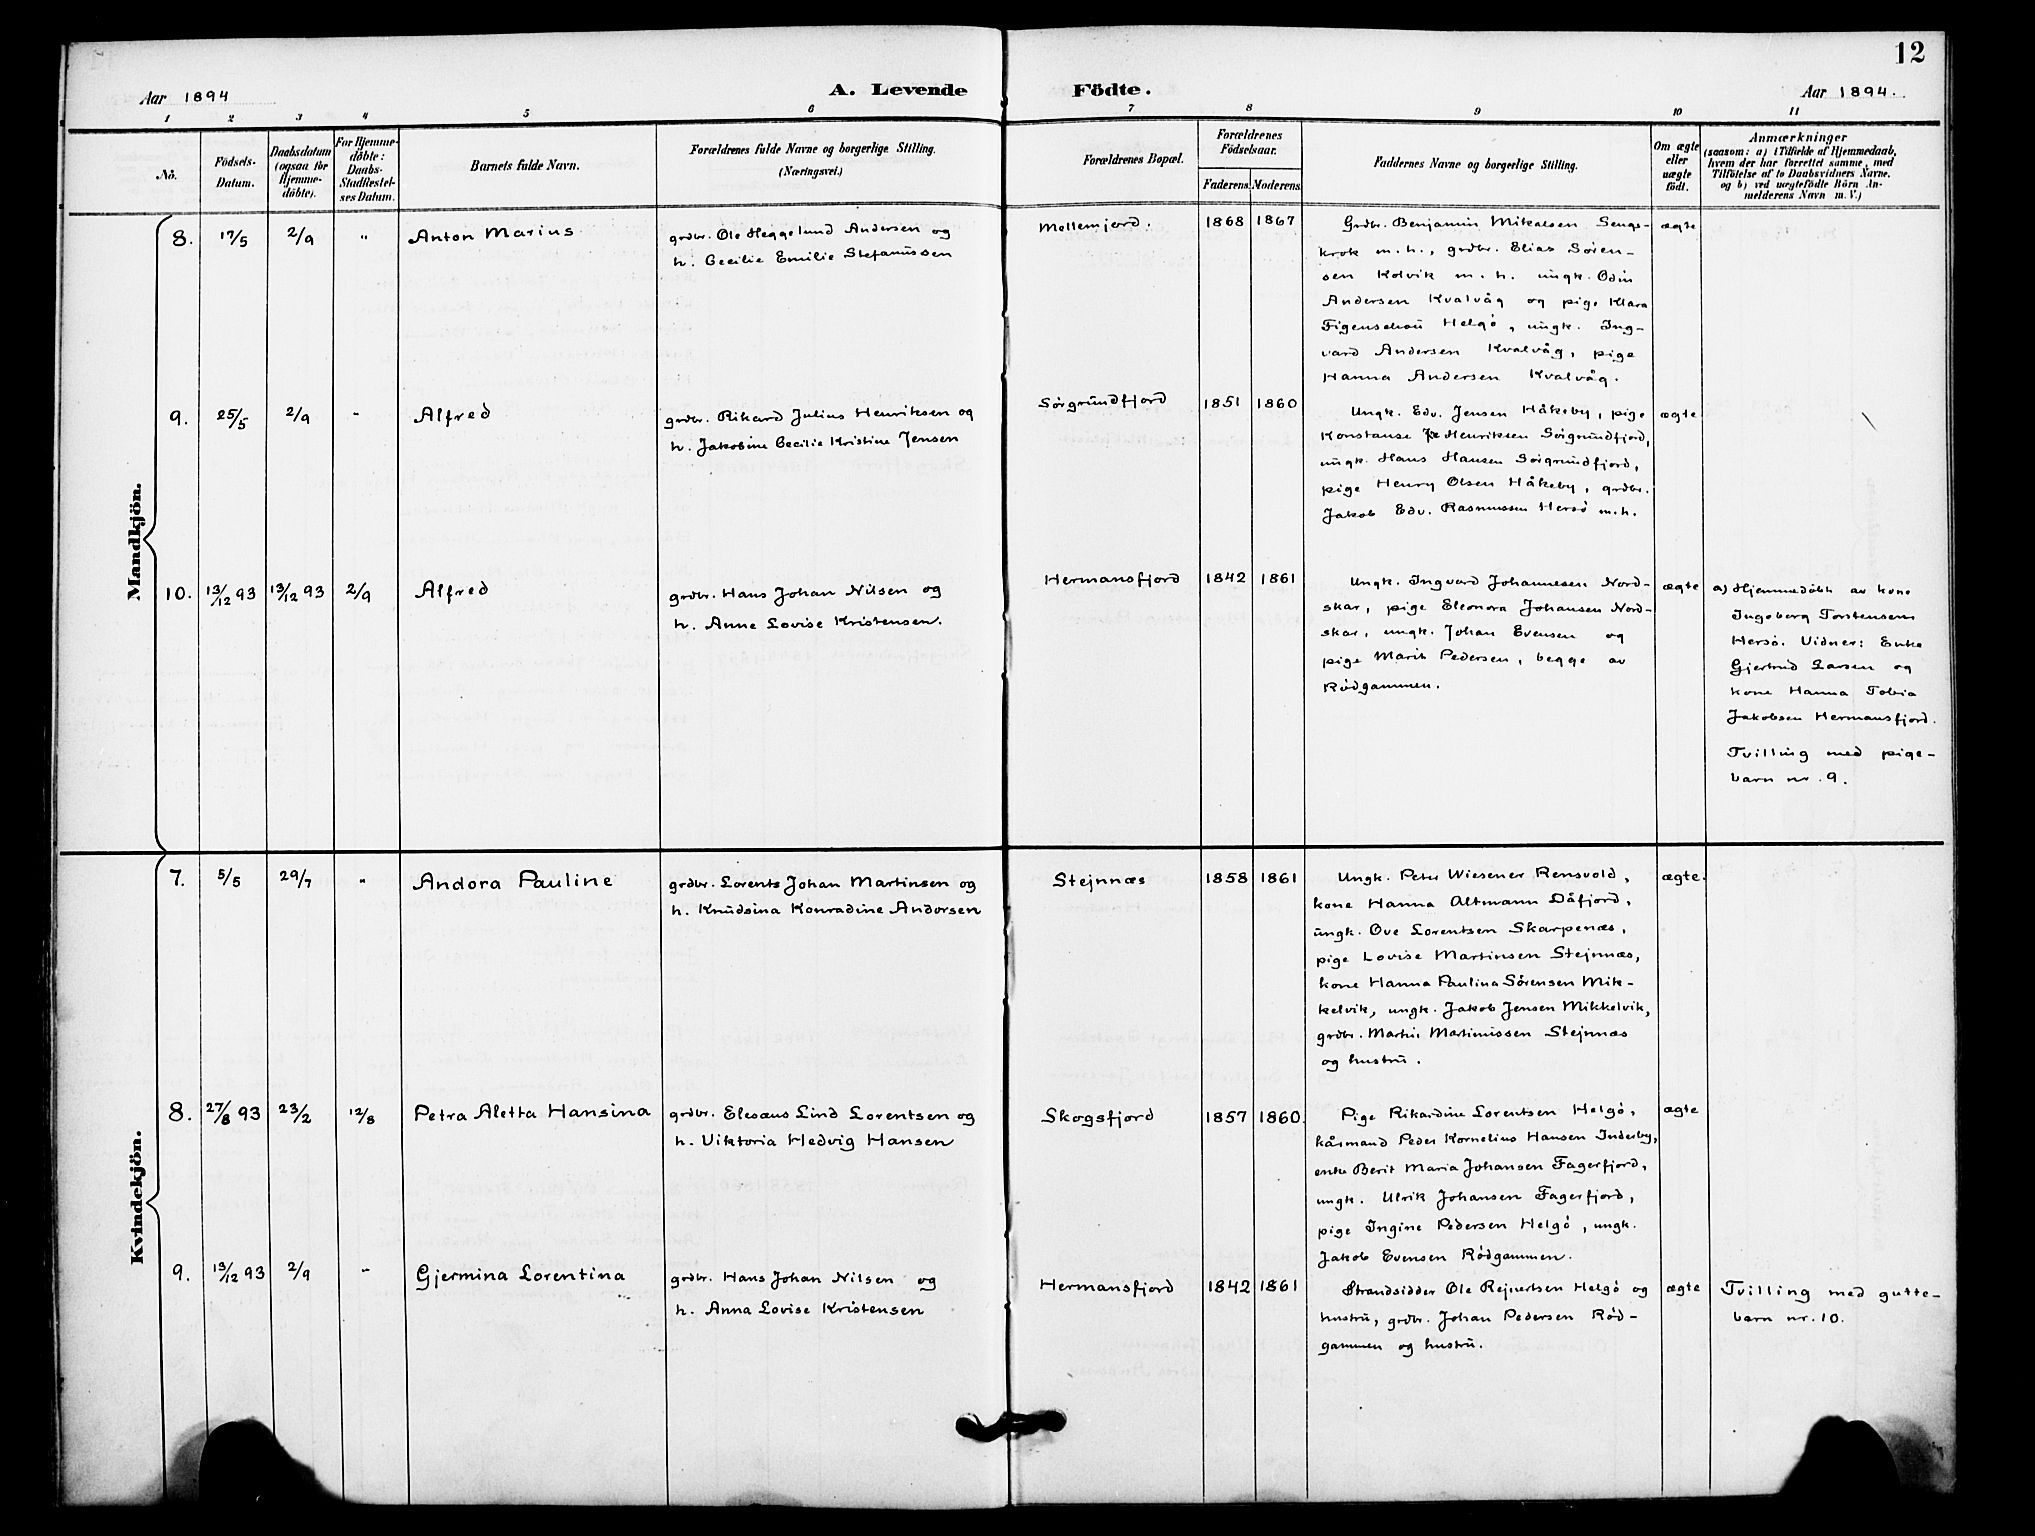 12
Aar 1894
A. Levende Födte.
Aar 1894.
1 2 3 4 5 6 7 8 9 10 11
No.
Födsels-
Datum.
Daabsdatum
(ogsaa for
Hjemme-
döbte).
For Hjemme-
döbte:
Daabs-
Stadfæstel-
ses Datum.
Barnets fulde Navn.
Forældrenes fulde Navne og borgerlige Stilling.
(Næringsvei.)
Forældrenes Bopæl.
Forældrenes
Födselsaar.
Faderens. Moderens.
Faddernes Navne og borgerlige Stilling.
Om ægte
eller
uægte
födt.
Anmærkninger
(saasom: a) i Tilfælde af Hjemmedaab,
hvem der har forrettet samme, med
Tilföielse af to Daabsvidners Navne.
og b) ved uægtefödte Börn An-
melderens Navn m.V.)
Mandkjön.
8. 17/5 2/9 " Anton Marius
grdbr. Ole Heggelund Andersen og
h. Cecilie Emilie Stefanussen
Mellemjord. 1868 1867
Grdbr. Benjamin Mikalsen Sengs-
krok m.h., grdbr. Elias Sören-
sen Kolvik m.h. ungk. Odin
Andersen Kvalvåg og pige Klara
Figenschou Helgö, ungk. Ing-
vard Andersen Kvalvåg, pige
Hanna Andersen Kvalvåg.
ægte
9. 25/5 2/9 " Alfred
grdbr. Rikard Julius Henriksen og
h. Jakobine Cecilie Kristine Jensen
Sörgrundfjord 1851 1860
Ungk. Edv. Jensen Håkeby, pige
Konstanse Henriksen Sörgrundfjord,
ungk. Hans Hansen Sörgrundfjord,
pige Henry Olsen Håkeby, grdbr.
Jakob Edv. Rasmussen Hersö m.h.
ægte
10. 13/12 93 13/12 93 2/9 Alfred
grdbr. Hans Johan Nilsen og
h. Anne Lovise Kristensen.
Hermansfjord 1842 1861
Ungk. Ingvard Johannesen Nord-
skar, pige Eleonora Johansen Nord-
skar, ungk. Johan Evensen og
pige Marit Pedersen, begge av
Rödgammen.
ægte
a) Hjemmedöbt av kone
Ingeborg Torstensen
Hersö. Vidner: Enke
Gjertrud Larsen og
kone Hanna Tobia
Jakobsen Hermansfjord.
Tvilling med pige-
barn nr. 9.
Kvindekjön.
7. 5/5 29/7 " Andora Pauline
grdbr. Lorents Johan Martinsen og
h. Knudsina Konradine Andorsen
Stejnnæs 1858 1861
Ungk. Peter Wiesener Rensvold,
kone Hanna Altmann Dåfjord,
ungk. Ove Lorentsen Skarpenæs,
pige Lovise Martinsen Stejnnæs,
kone Hanna Paulina Sörensen Mik-
kelvik, ungk. Jakob Jensen Mikkelvik,
grdbr. Martin Martinussen Stejnnæs
og hustru.
ægte.
8. 27/8 93 23/2 12/8 Petra Aletta Hansina
grdbr. Elesæus Lind Lorentsen og
h. Viktoria Hedvig Hansen
Skogsfjord 1857 1860.
Pige Rikardine Lorentsen Helgö,
kårmand Peder Kornelius Hansen Inderby,
enke Berit Maria Johansen Fagerfjord,
ungk. Ulrik Johansen Fagerfjord,
pige Ingine Pedersen Helgö, ungk.
Jakob Evensen Rödgammen.
ægte
9. 13/12 93 2/9 " Gjermina Lorentina
grdbr. Hans Johan Nilsen og
h. Anna Lovise Kristensen
Hermansfjord 1842 1861
Strandsidder Ole Rejnertsen Helgö og
hustru, grdbr. Johan Pedersen Röd-
gammen og hustru.
ægte
Tvilling med gutte-
barn nr. 10.